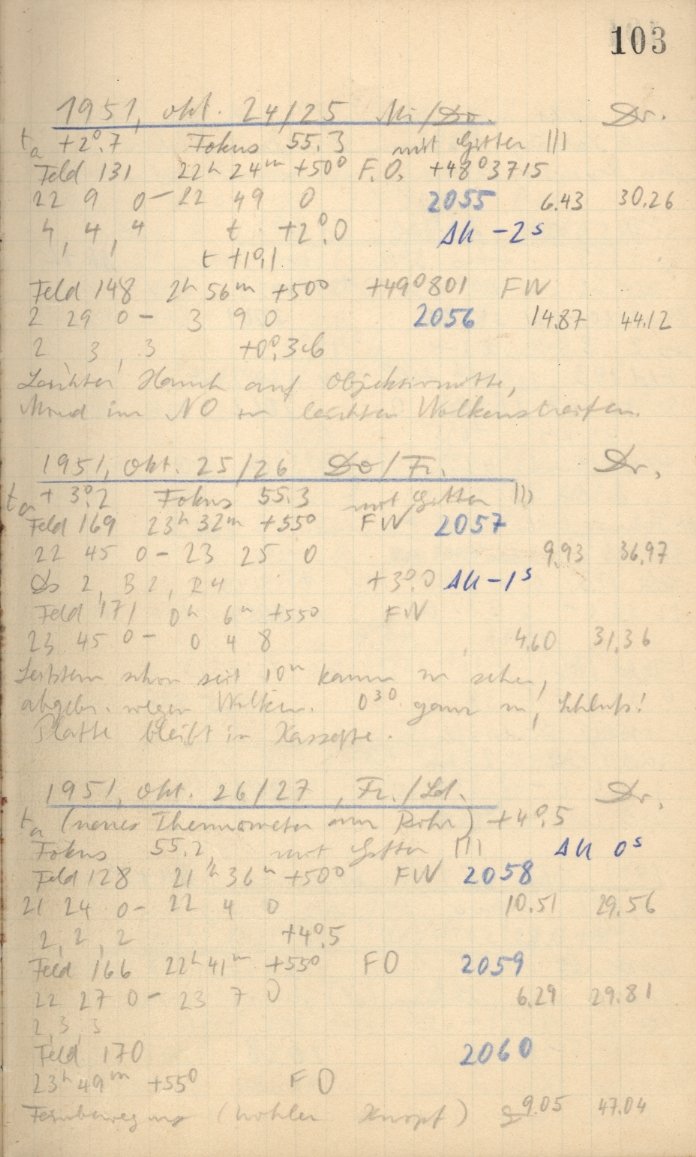 103
1951, Okt. 24/25 Mi/Do. Dr.
ta +2°.7 Fokus 55.3 mit Gitter |||
Feld 131 22h 24m +50° F.O. +48°3715
22 9 0 – 22 49 0 2055 6.43 30.26
4, 4, 4 t +2°.0 Δu -2s
t +19,1
Feld 148 2h 56m +50° +49°801 FW
2 29 0 – 3 9 0 2056 14.87 44.12
2 3, 3 +0°.3
Leichter Hauch auf Objektivmitte,
Mond im NO in leichten Wolkenstreifen.
1951, Okt. 25/26 Do/Fr. Dr.
ta +3°.2 Fokus 55.3 mit Gitter |||
Feld 169 23h 32m +55° FW 2057
22 45 0 – 23 25 0 9.93 36.97
2, B 2, R 4 +3°.0 Δu -1s
Feld 171 0h 6m +55° FW
23 45 0 – 0 4 8 4.60 31.36
Leitstern schon seit 10m kaum zu sehen,
abgebr. wegen Wolken. 0 30 ganz zu, Schluß!
Platte bleibt in Kassette.
1951, Okt. 26/27, Fr./Sd. Dr.
ta (neues Thermometer am Rohr) +4°.5
Fokus 55.2, mit Gitter ||| Δu 0s
Feld 128 21h 36m +50° FW 2058
21 24 0 – 22 4 0 10.51 29.56
2, 2, 2 +4°.5
Feld 166 22h 41m +55° FO 2059
22 27 0 – 23 7 0 6.29 29.81
2, 3, 3
Feld 170 2060
23h 49m +55° FO
Feinbewegung (hohler Knopf) 9.05 47.04